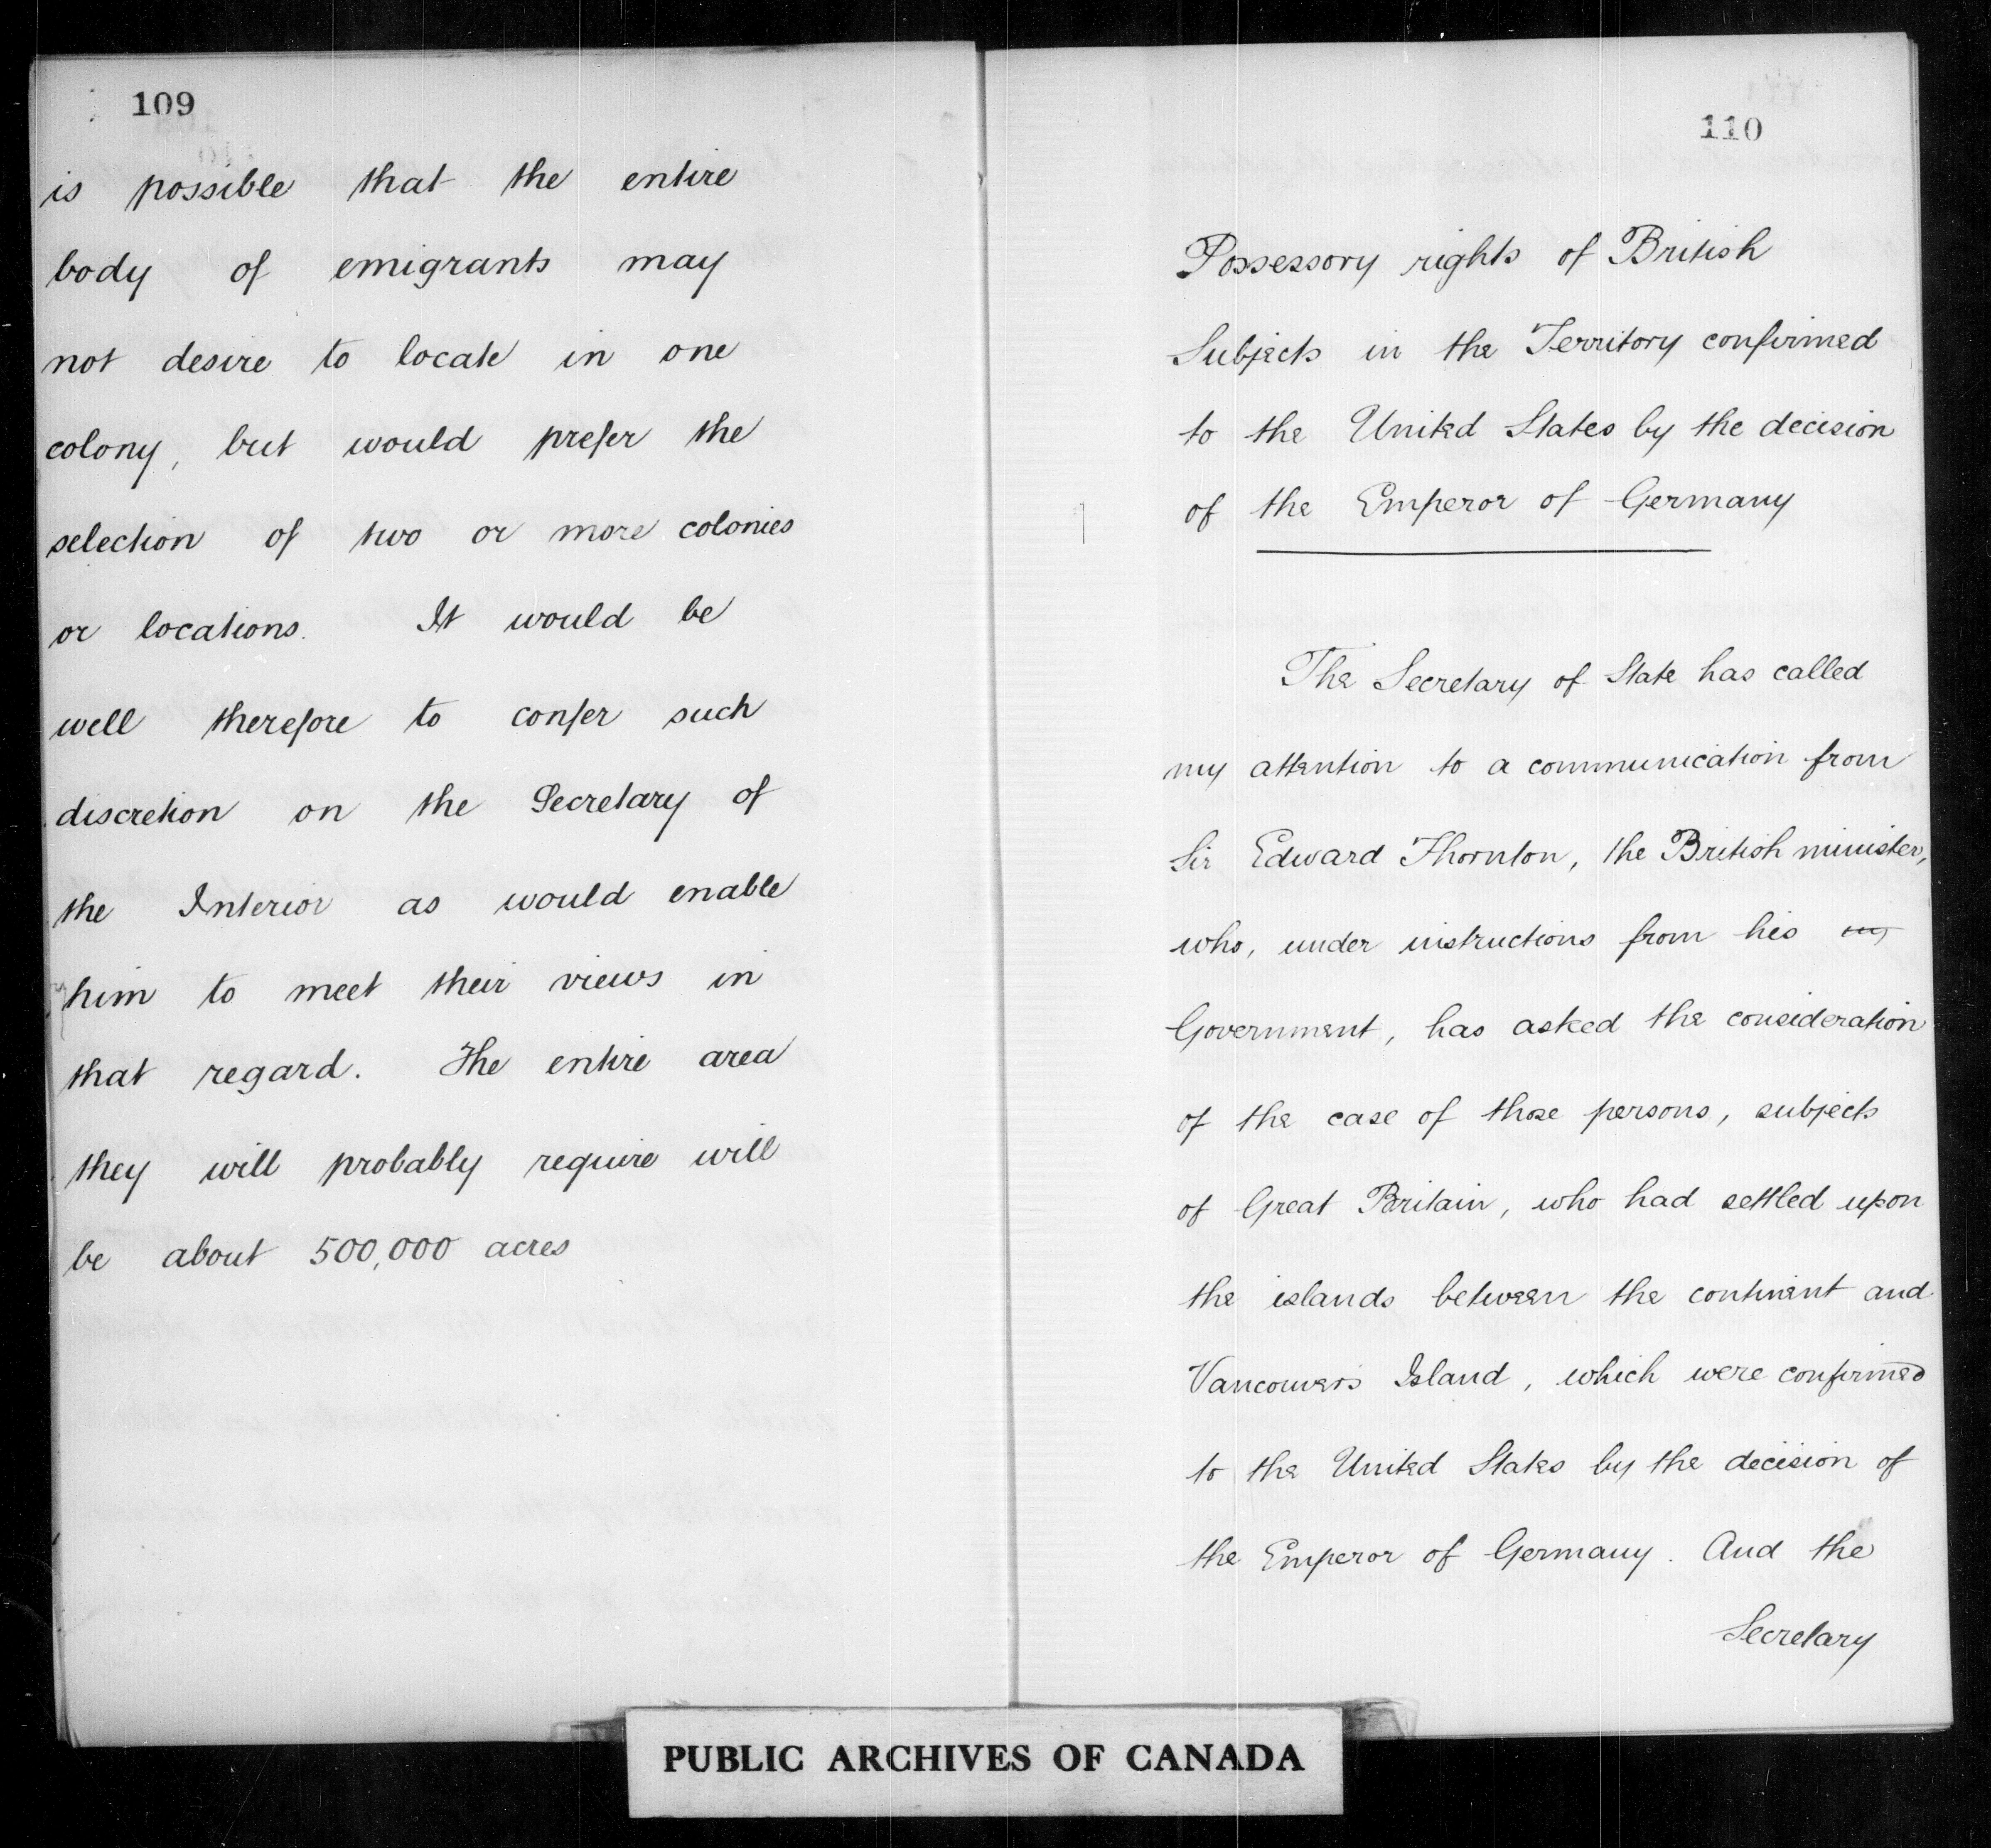 109
is possible that the entire
body of emigrants may
not desire to locate in one
colony, but would prefer the
selection of two or more colonies
or locations. It would be
well therefore to confer such
discretion on the Secretary of
the Interior as would enable
him to meet their views in
that regard. The entire area
they will probably require will
be about 500,000 acres
110
Possessory rights of British
Subjects in the Territory confirmed
to the United States by the decision
of the Emperor of Germany
The Secretary of State has called
my attention to a communication from
Sir Edward Thornton, the British minister,
who, under instructions from his
Government, has asked the consideration
of the case of those persons, subjects
of Great Britain, who had settled upon
the islands between the continent and
Vancouver's Island, which were confirmed
to the United States by the decision of
the Emperor of Germany. And the
Secretary
PUBLIC ARCHIVES OF CANADA